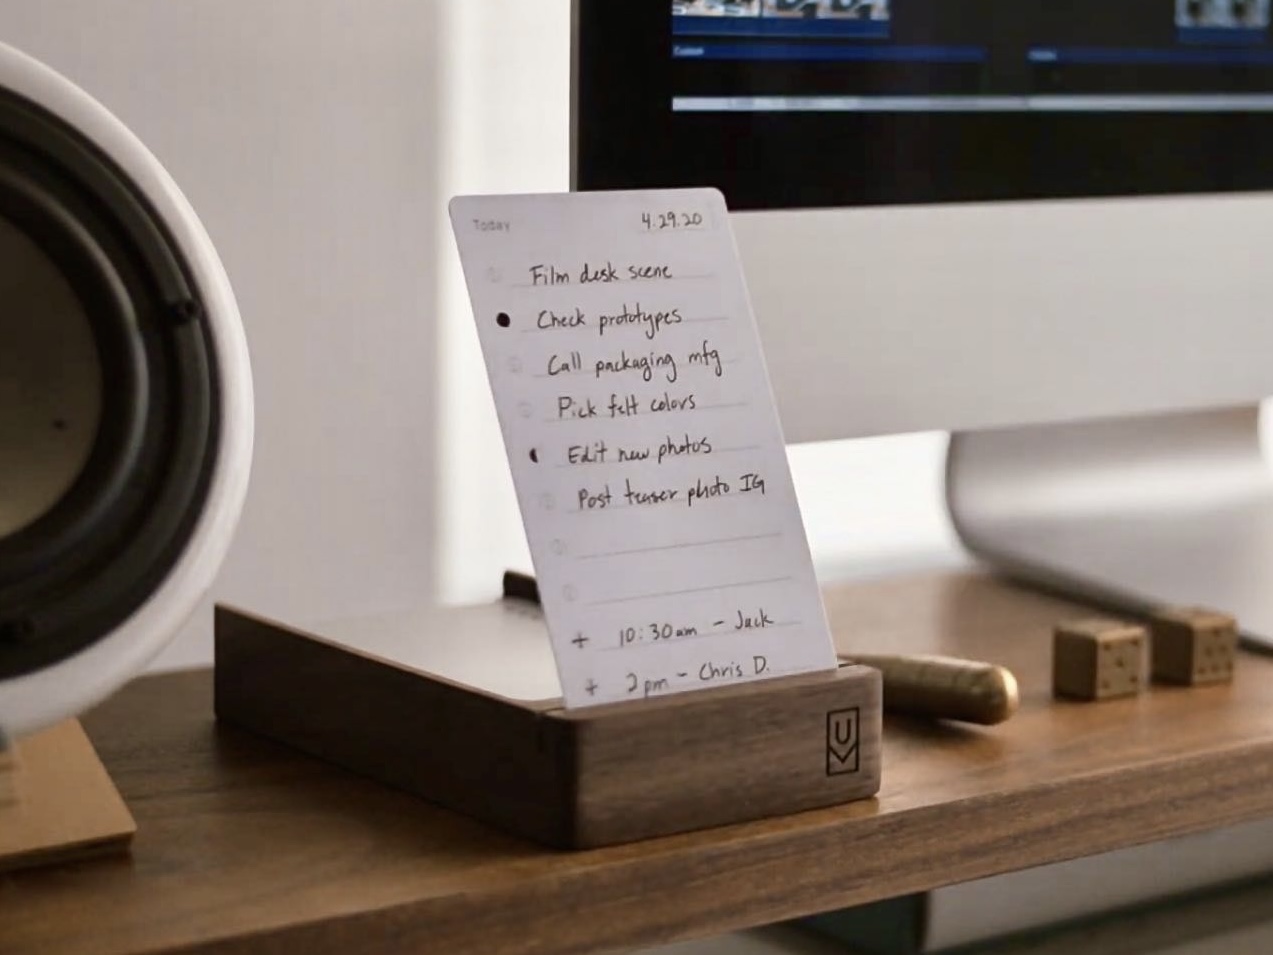 Today 4.29.20
Film desk scene
Check prototypes
Call packaging mfg
Pick felt colors
Edit new photos
Post teaser photo IG
+ 10:30am - Jack
+ 2pm - Chris D.
U